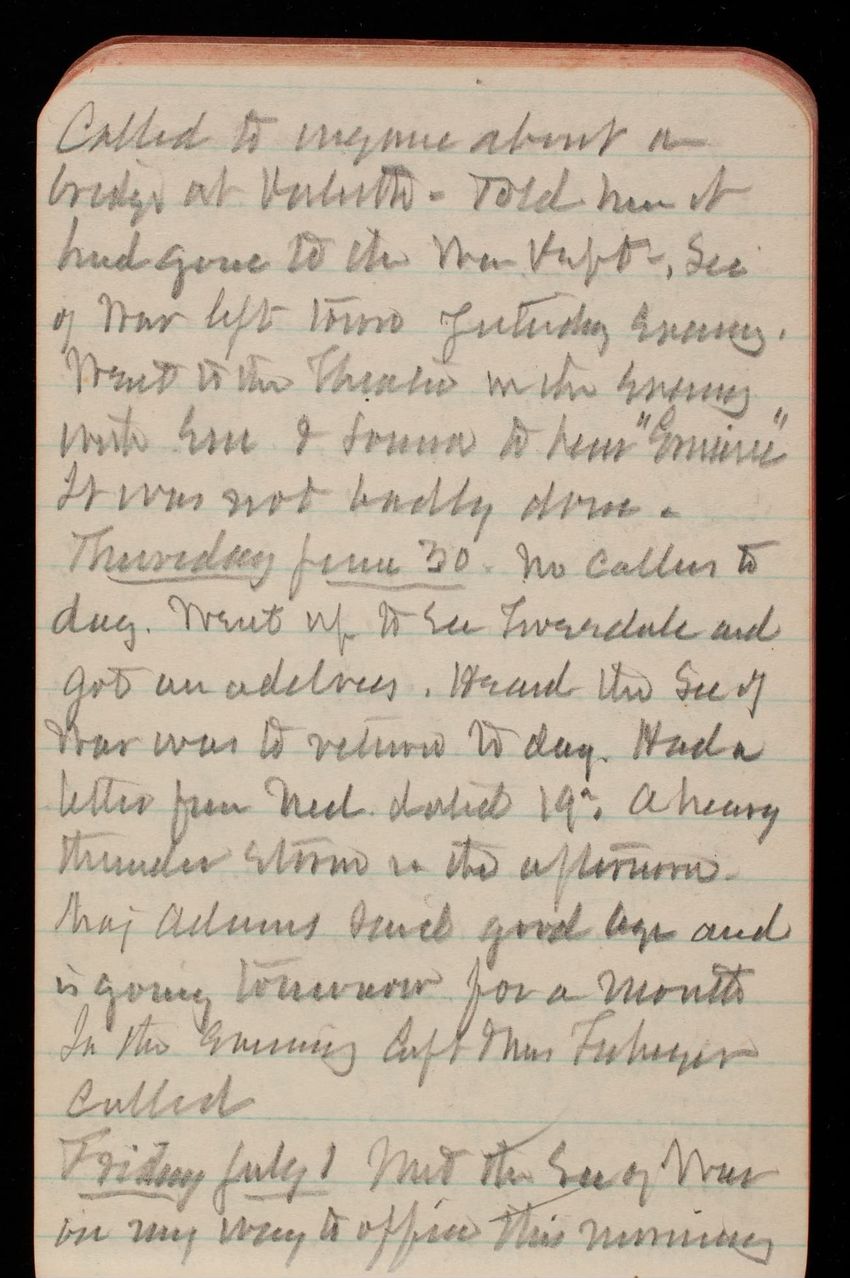 Called to inquire about a
bridge at Duluth - Told him it
had gone to the War Dept-, Sec
of War left town yesterday evening.
Went to the Theatre in the evening
with Evu & Donna to hear "Ermine"
It was not badly done -
Thursday June 30. No callers to
day. Went up to see Truesdale and
got an address. Heard the Sec of
War was to return to day. Had a
letter from Ned dated 19th. A heavy
thunder storm in the afternoon.
Maj Adams said good bye and
is going tomorrow for a month
In the evening Capt & Mrs
called
Friday July 1 Met the Sec of War
on my way to office this morning